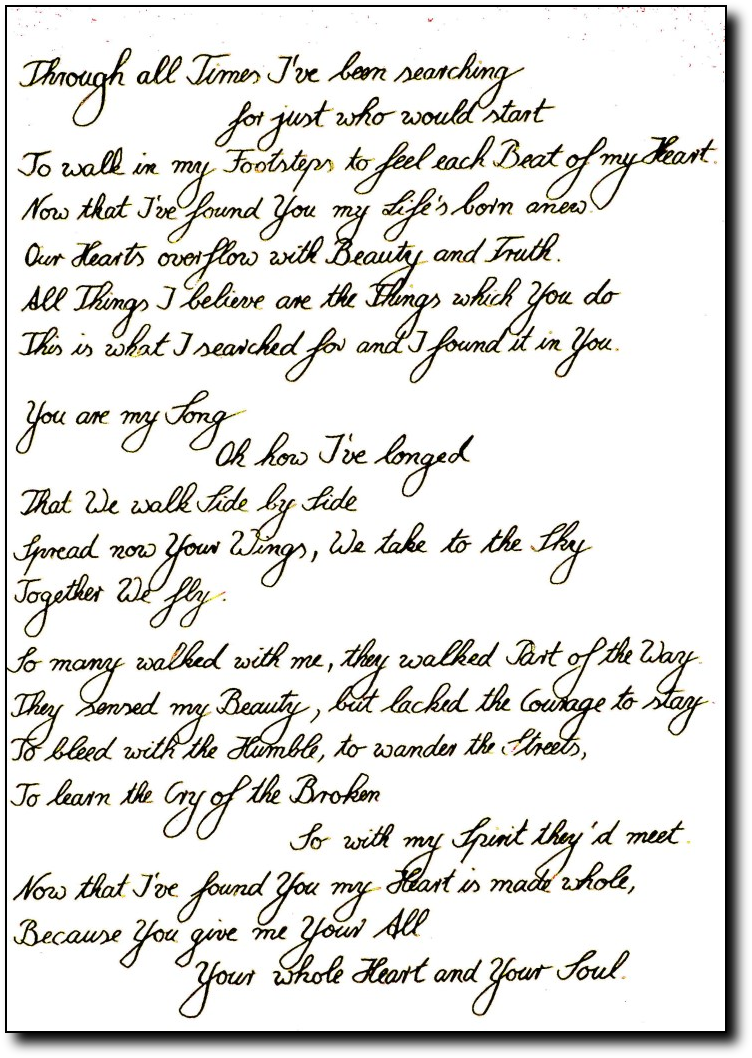 Through all Times I've been searching
for just who would start
To walk in my Footsteps to feel each Beat of my Heart.
Now that I've found You my Life's born anew.
Our Hearts overflow with Beauty and Truth.
All Things I believe are the Things which You do
This is what I searched for and I found it in You.
You are my Song
Oh how I've longed
That We walk Side by Side
Spread now Your Wings, We take to the Sky
Together We fly.
So many walked with me, they walked Part of the Way.
They sensed my Beauty, but lacked the Courage to stay.
To bleed with the Humble, to wander the Streets,
To learn the Cry of the Broken
So with my Spirit they'd meet.
Now that I've found You my Heart is made whole,
Because You give me Your All
Your whole Heart and Your Soul.